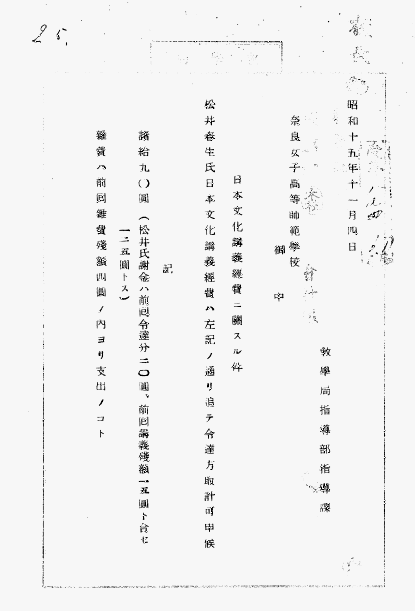 25.
昭和十五年十一月四日
教學局指導部指導課
奈良女子高等師範學校
御中
日本文化講義經費ニ關スル件
松井春生氏日本文化講義經費ハ左記ノ通リ追テ令達方取計可申候
記
諸給九〇圓(松井氏謝金ハ前回令達分二〇圓、前回講義殘額一五圓ト合セ
一二五圓トス)
雜費ハ前回雜費殘額四圓ノ內ヨリ支出ノコト